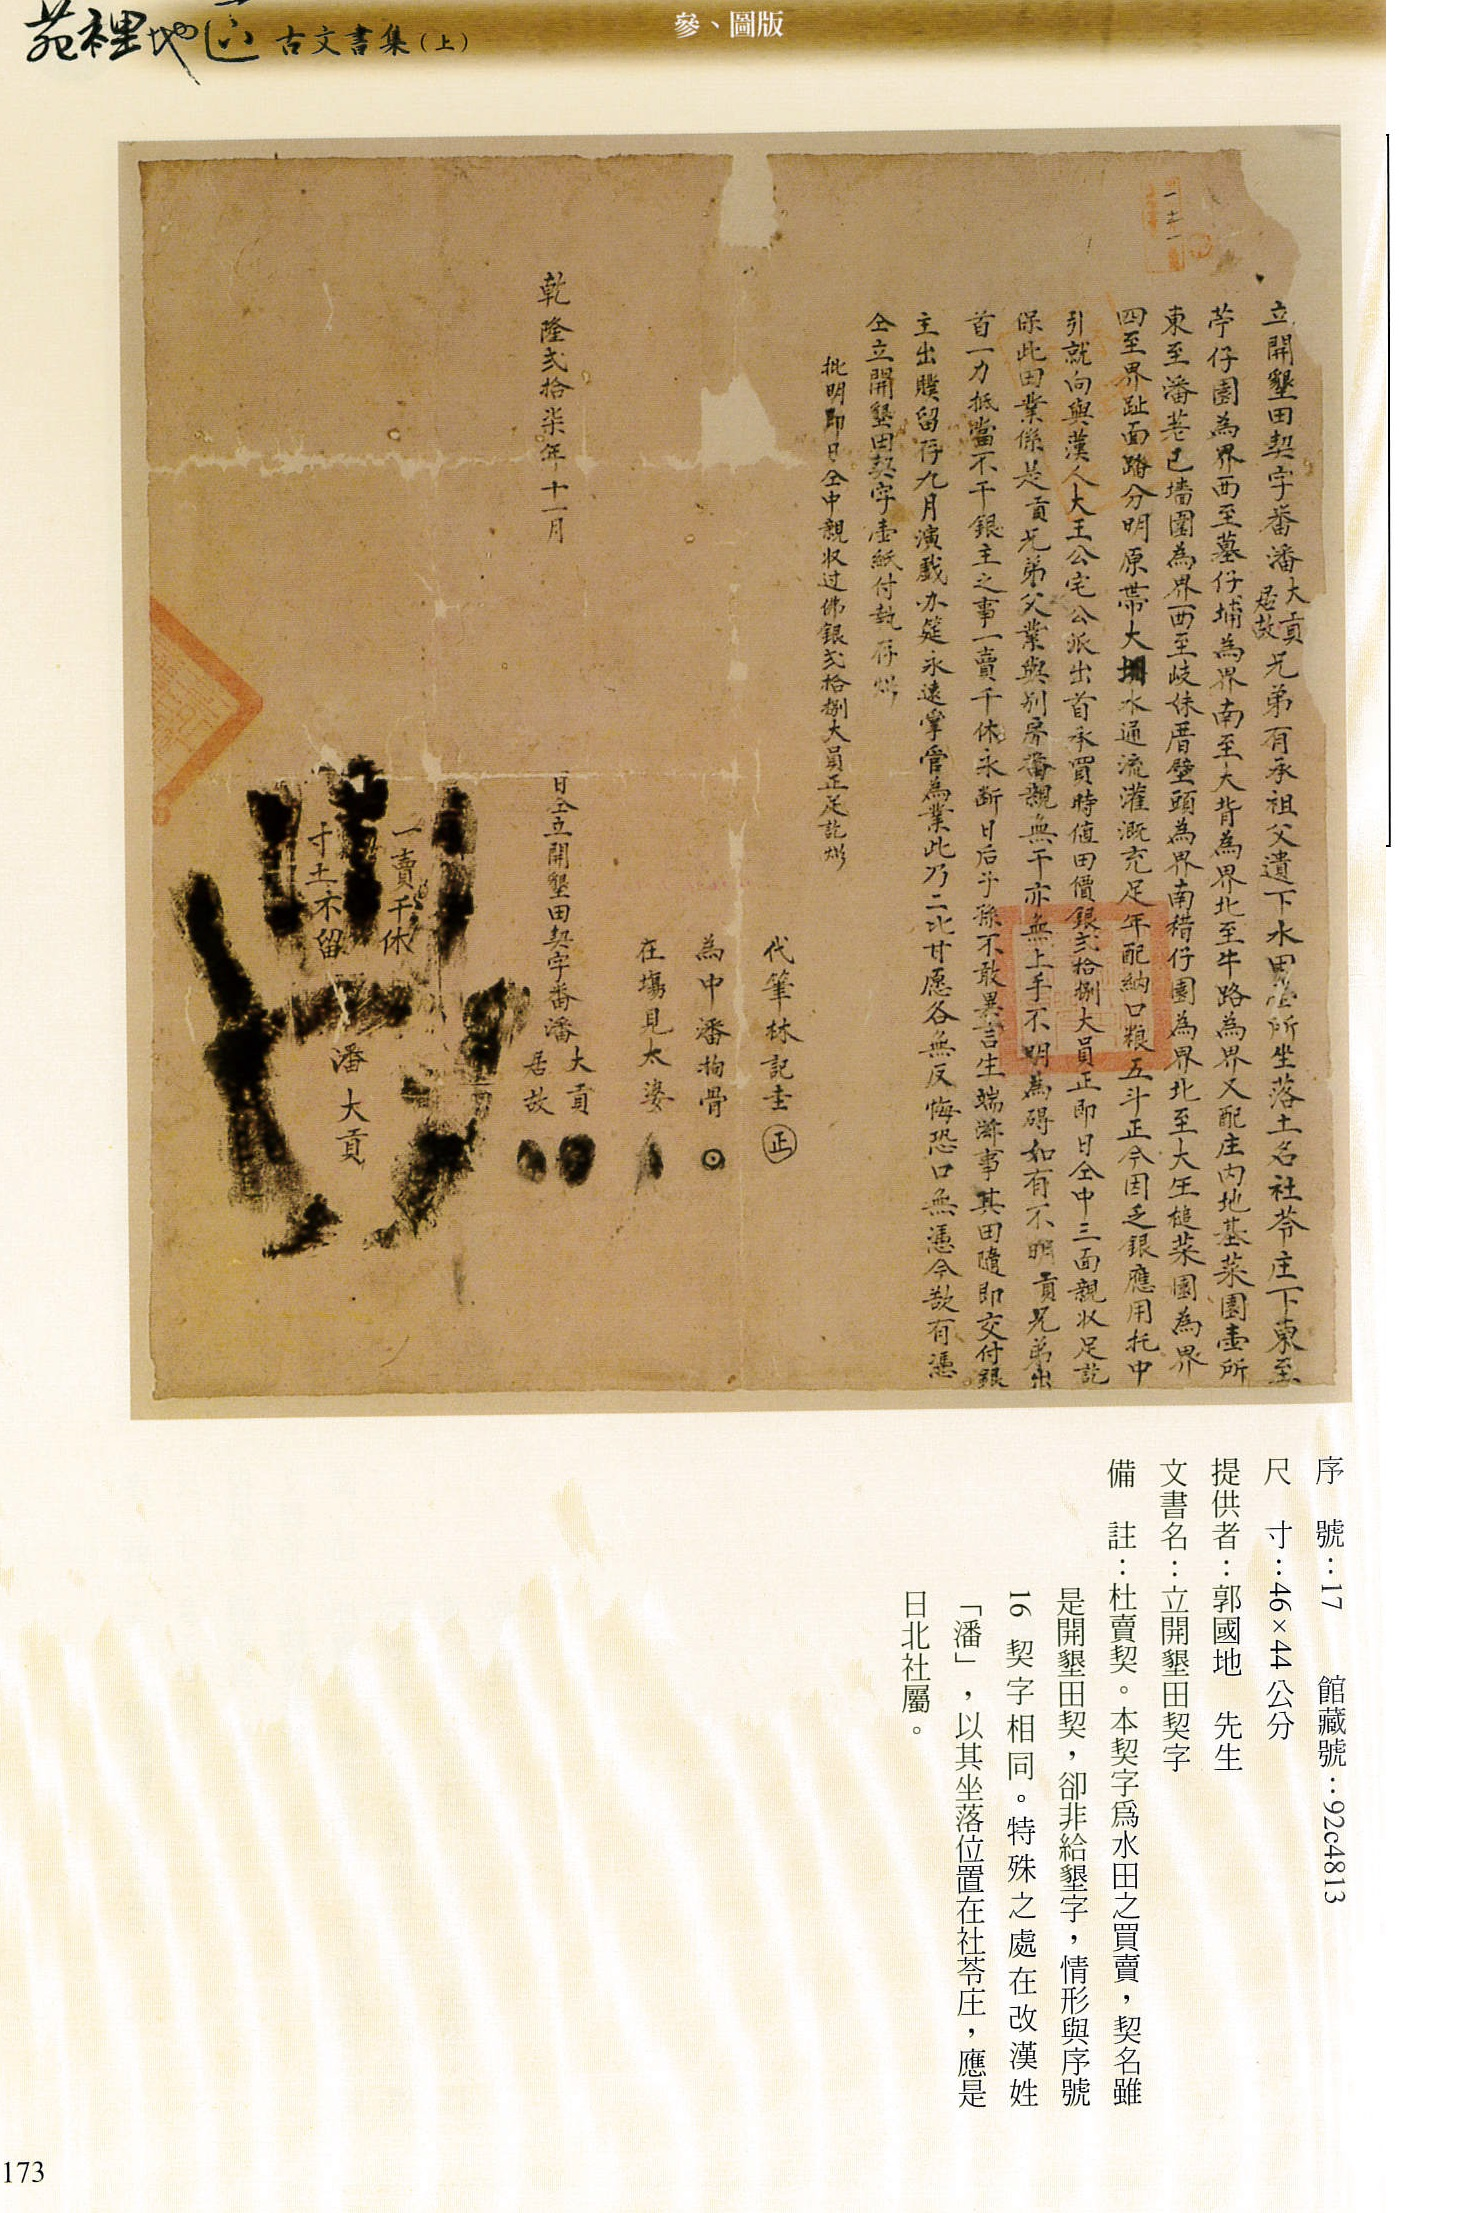 參、圖版
苑裡地區古文書集(上)
立開墾田契字番潘大貢居故兄弟有承祖父遺下水田壹所坐落土名社苓庄下東至
苧仔園為界西至墓仔埔為界南至大背為界北至牛路為界又配庄内地基菜園壹所
東至潘茖已墻圍為界西至歧味厝壁頭為界南稽仔園為界北至大生槌菜園為界
四至界趾面踏分明原帶大圳水通流灌溉充足年配納口粮五斗正今因乏銀應用托中
引就向與漢人大王公宅公派出首承買時值田價銀弍拾捌大員正即日仝中三面親收足訖
保此田業係是貢兄弟父業與別房番親無干亦無上手不明為碍如有不明貢兄弟出
首一力抵當不干銀主之事一賣千休永斷日后子孫不敢異言生端滋事其田隨即交付銀
主出贌留存九月演戲办筵永遠掌管為業此乃二比甘愿各無反悔恐口無憑今欲有憑
仝立開墾田契字壹紙付執存炤
批明即日仝中親收过佛銀弍拾捌大員正足訖炤
代筆林記圭 正
為中潘拘骨
在塲見太婆
乾隆弍拾柒年十一月 日仝立開墾田契字番潘大貢居故
一賣千休
寸土不留
潘大貢
序 號：17 館藏號：92c4813
尺 寸：46×44公分
提供者：郭國地 先生
文書名：立開墾田契字
備 註：杜賣契。本契字為水田之買賣，契名雖
是開墾田契，卻非給墾字，情形與序號
16 契字相同。特殊之處在改漢姓
「潘」，以其坐落位置在社苓庄，應是
日北社屬。
173